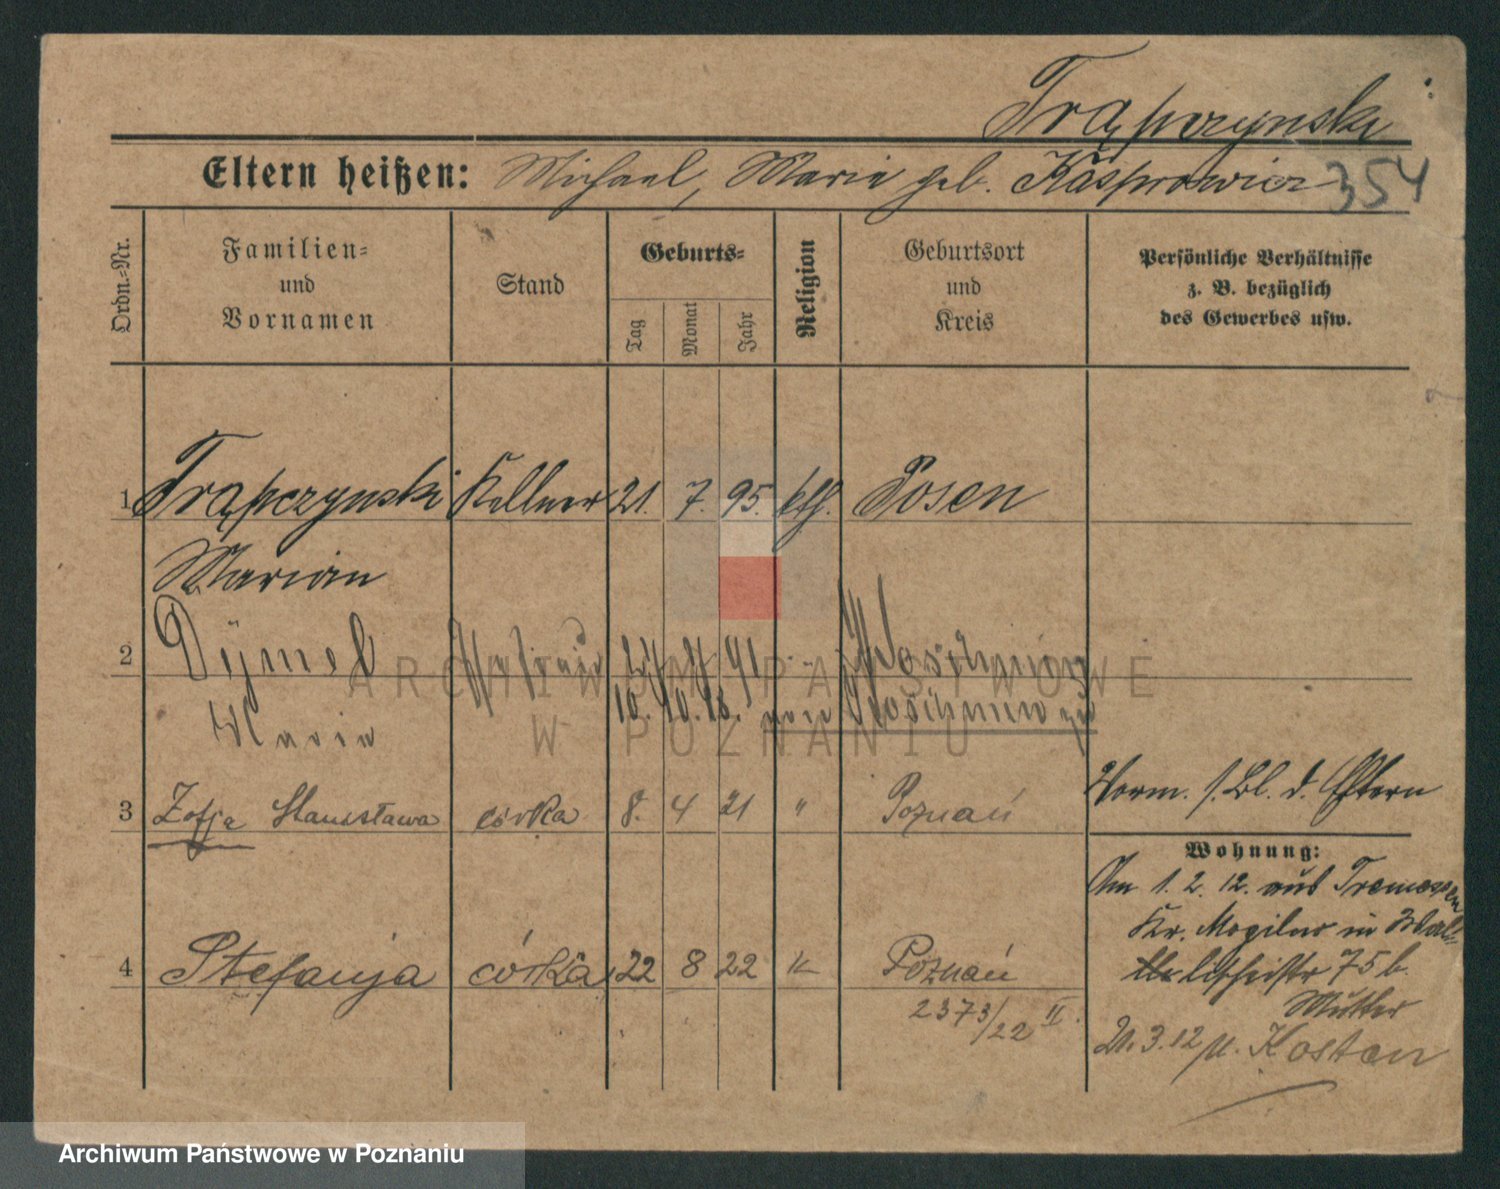 Trąpczynski
Eltern heißen: Michael, Marie geb. Kasprowicz 354
Ordn.-Nr.
Familien-
und
Vornamen
Stand
Geburts-
Tag
Monat
Jahr
Religion
Geburtsort
und
Kreis
Persönliche Verhältnisse
z. B. bezüglich
des Gewerbes usw.
1 Trąpczynski Kellner 21. 7. 95. kth. Posen
Marian
2 Dÿmel 41
10. 10.
Maria
3 Zofja Stanisława córka 8. 4 21 " Poznań
Vorm. s. Bl. d. Eltern
Wohnung:
Am 1. 2. 12. aus Tremessen
Kr. Mogilno in
75 b.
Mutter
4 Stefanja córka 22 8 22 k Poznań
2373/22 II.
21.3.12 n. Kosten
ARCHIWUM PAŃSTWOWE
W POZNANIU
Archiwum Państwowe w Poznaniu